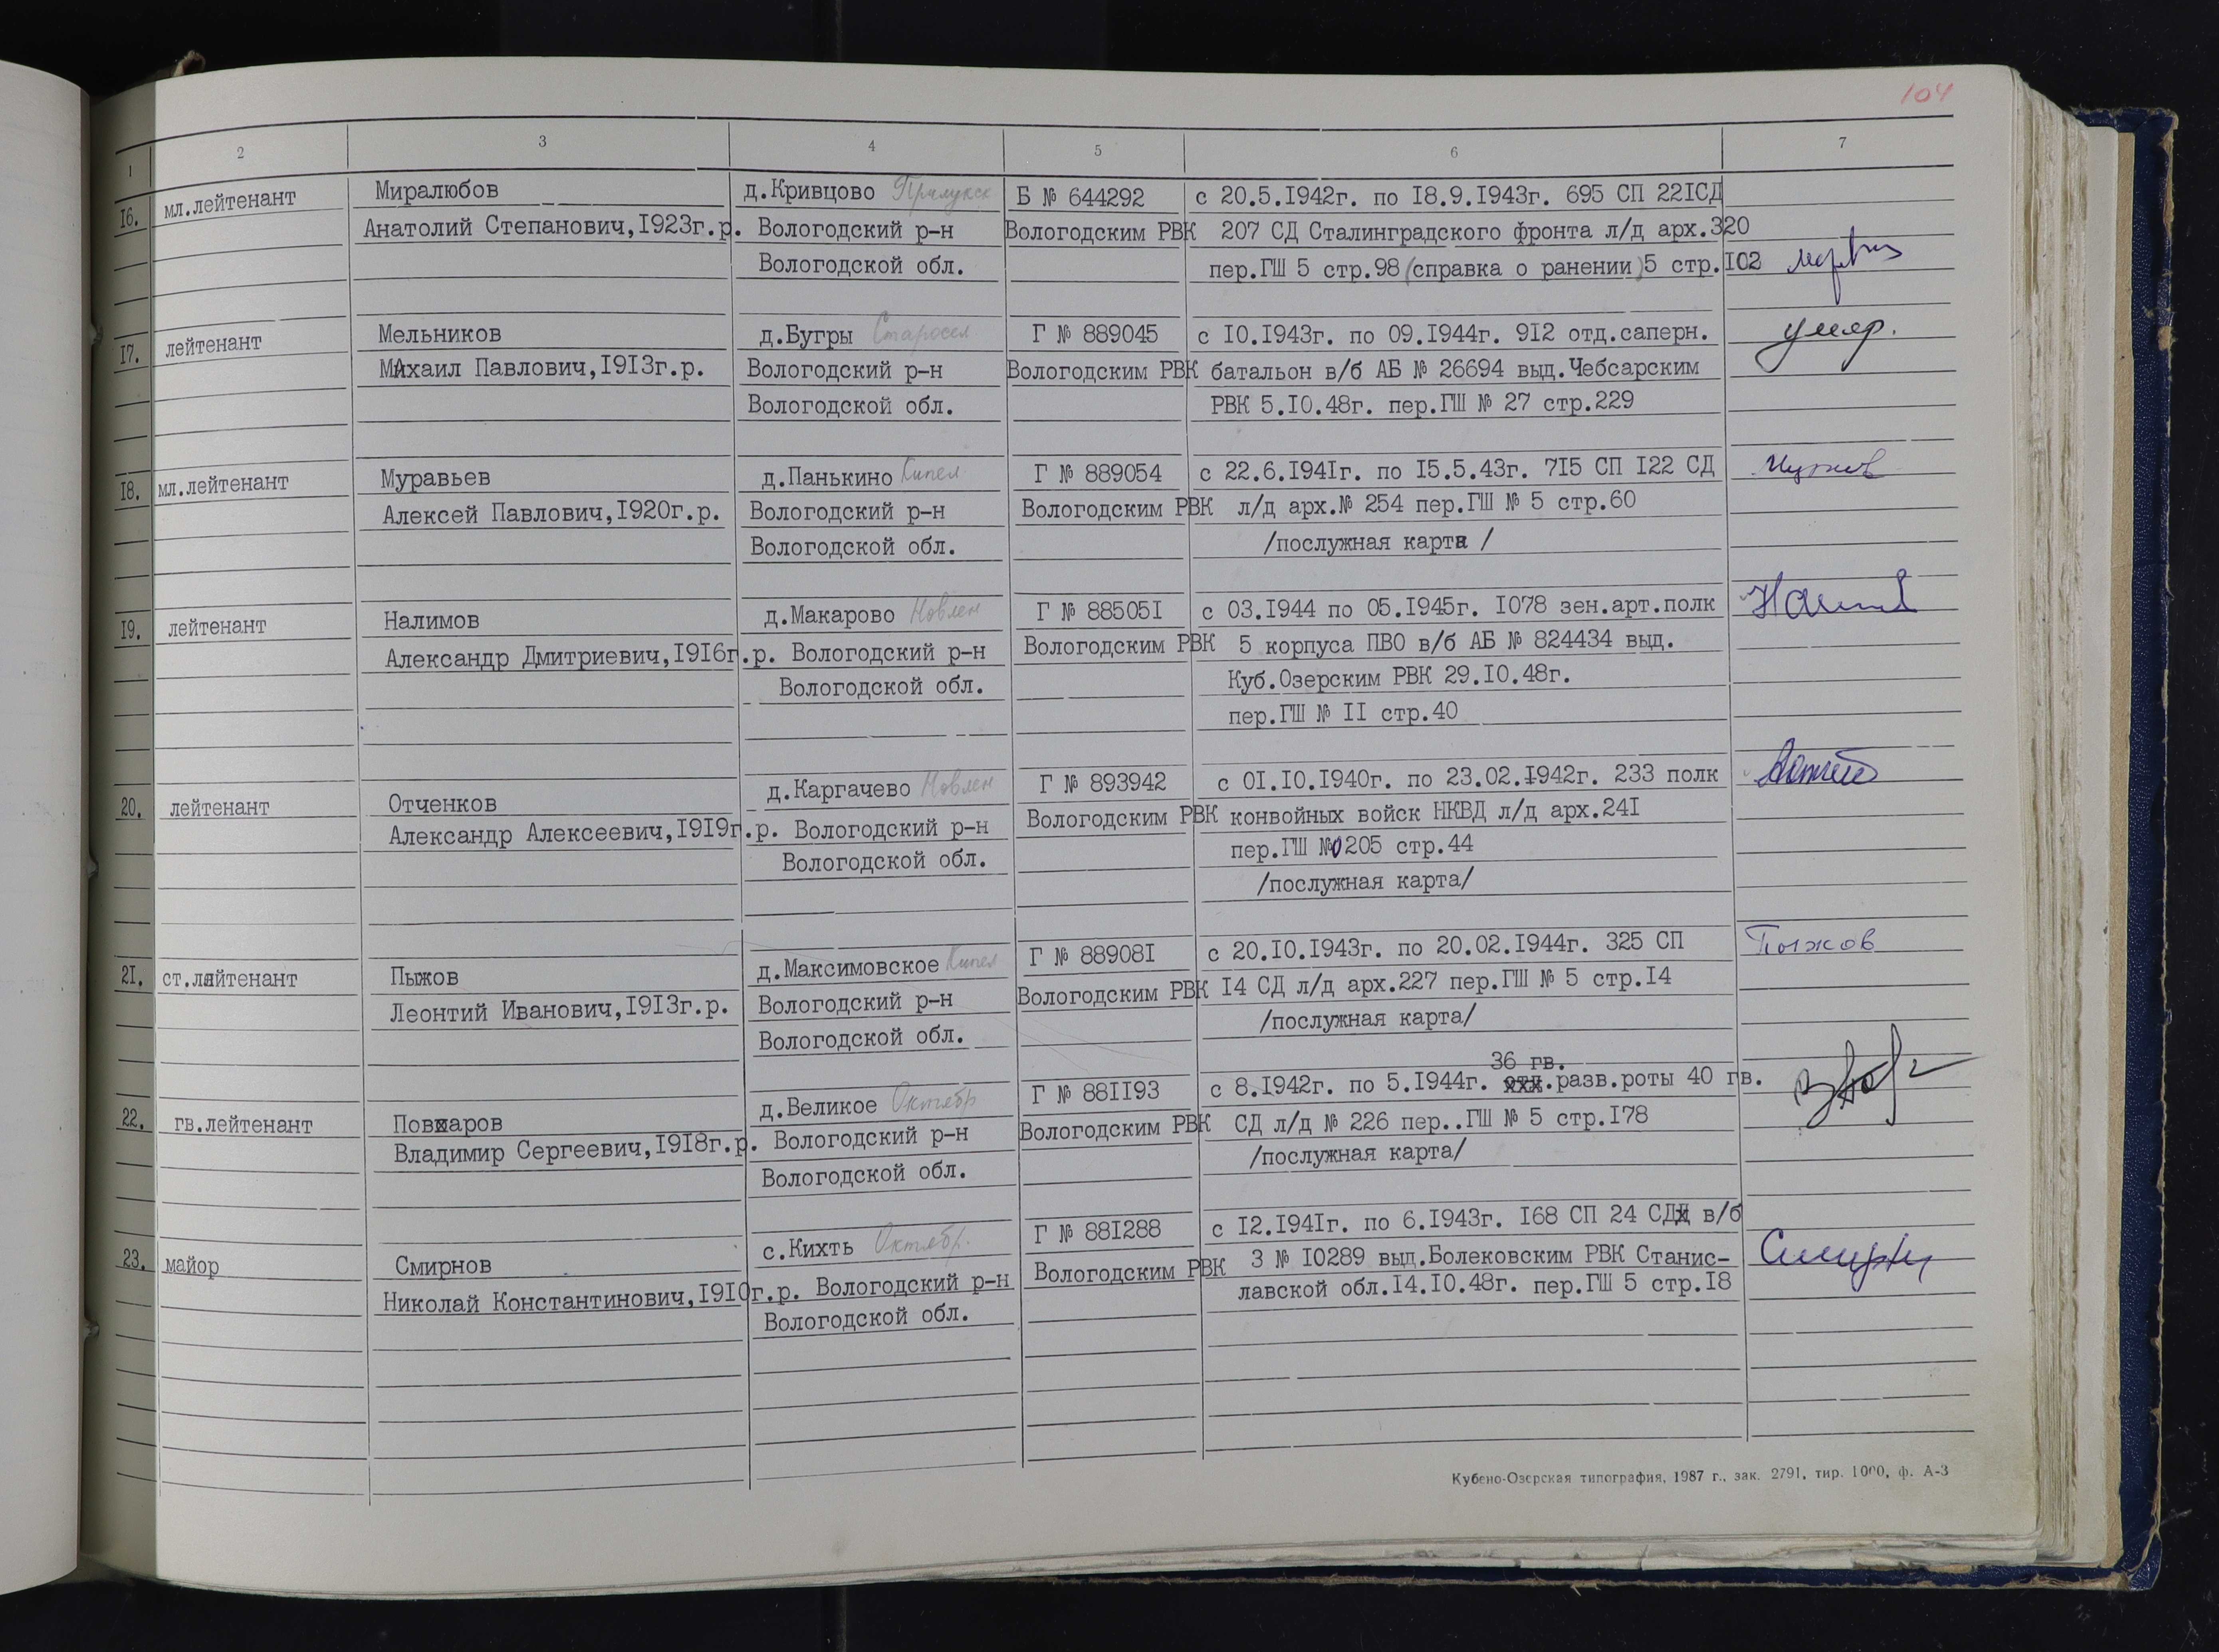 104
1 2 3 4 5 6 7
16. мл.лейтенант Миралюбов д.Кривцово Прилукск Б № 644292 с 20.5.1942г. по 18.9.1943г. 695 СП 221СД
Анатолий Степанович,1923г.р. Вологодский р-н Вологодским РВК 207 СД Сталинградского фронта л/д арх.320
Вологодской обл. пер.ГШ 5 стр.98 (справка о ранении) 5 стр.102
17. лейтенант Мельников д.Бугры Старосел. Г № 889045 с 10.1943г. по 09.1944г. 912 отд.саперн. умер.
Михаил Павлович,1913г.р. Вологодский р-н Вологодским РВК батальон в/б АБ № 26694 выд.Чебсарским
Вологодской обл. РВК 5.10.48г. пер.ГШ № 27 стр.229
18. мл.лейтенант Муравьев д.Панькино Кипел Г № 889054 с 22.6.1941г. по 15.5.43г. 715 СП 122 СД
Алексей Павлович,1920г.р. Вологодский р-н Вологодским РВК л/д арх.№ 254 пер.ГШ № 5 стр.60
Вологодской обл. /послужная карта /
19. лейтенант Налимов д.Макарово Новлен Г № 885051 с 03.1944 по 05.1945г. 1078 зен.арт.полк
Александр Дмитриевич,1916г.р. Вологодский р-н Вологодским РВК 5 корпуса ПВО в/б АБ № 824434 выд.
Вологодской обл. Куб.Озерским РВК 29.10.48г.
пер.ГШ № 11 стр.40
20. лейтенант Отченков д.Каргачево Новлен Г № 893942 с 01.10.1940г. по 23.02.1942г. 233 полк
Александр Алексеевич,1919г.р. Вологодский р-н Вологодским РВК конвойных войск НКВД л/д арх.241
Вологодской обл. пер.ГШ №0205 стр.44
/послужная карта/
21. ст.лейтенант Пыжов д.Максимовское Кипел Г № 889081 с 20.10.1943г. по 20.02.1944г. 325 СП Пыжов
Леонтий Иванович,1913г.р. Вологодский р-н Вологодским РВК 14 СД л/д арх.227 пер.ГШ № 5 стр.14
Вологодской обл. /послужная карта/
36 гв.
22. гв.лейтенант Поваров д.Великое Октябр Г № 881193 с 8.1942г. по 5.1944г. отд.разв.роты 40 гв.
Владимир Сергеевич,1918г.р. Вологодский р-н Вологодским РВК СД л/д № 226 пер..ГШ № 5 стр.178
Вологодской обл. /послужная карта/
23. майор Смирнов с.Кихть Октябр. Г № 881288 с 12.1941г. по 6.1943г. 168 СП 24 СД в/б
Николай Константинович,1910г.р. Вологодский р-н Вологодским РВК З № 10289 выд.Болековским РВК Станис-
Вологодской обл. лавской обл.14.10.48г. пер.ГШ 5 стр.18
Кубено-Озерская типография, 1987 г., зак. 2791, тир. 1000, ф. А-3